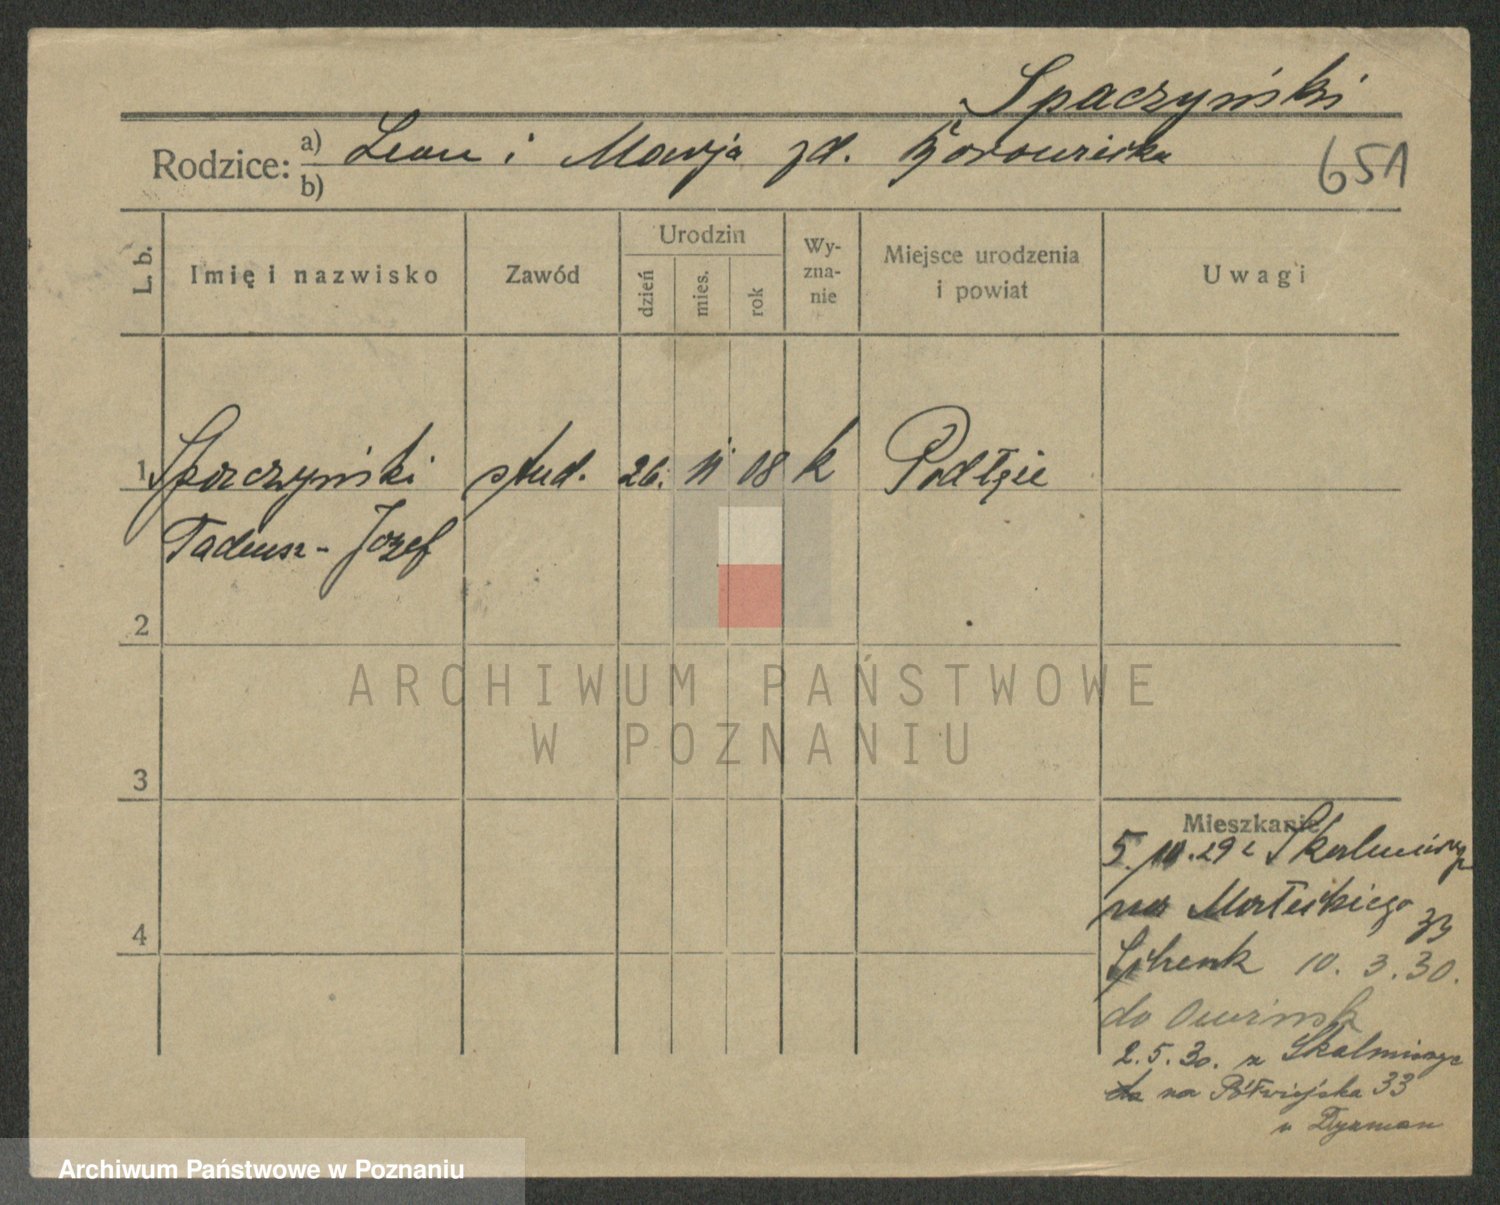 Spaczyński
Rodzice: a) Leon i Marja zd. Borowicka
b)
651
L. b.
Imię i nazwisko
Zawód
Urodzin
dzień
mies.
rok
Wy-
zna-
nie
Miejsce urodzenia
i powiat
Uwagi
1 Spaczyński stud. 26. 11 08 k Podłęże
Tadeusz - Józef
2
3
4
Mieszkanie
5. 10. 29 z Skalmierzyc
na Małeckiego 33
Schenk 10. 3. 30.
do Owińsk
2. 5. 30. z Skalmierzyc
na Półwiejska 33
u Dyzman
ARCHIWUM PAŃSTWOWE
W POZNANIU
Archiwum Państwowe w Poznaniu